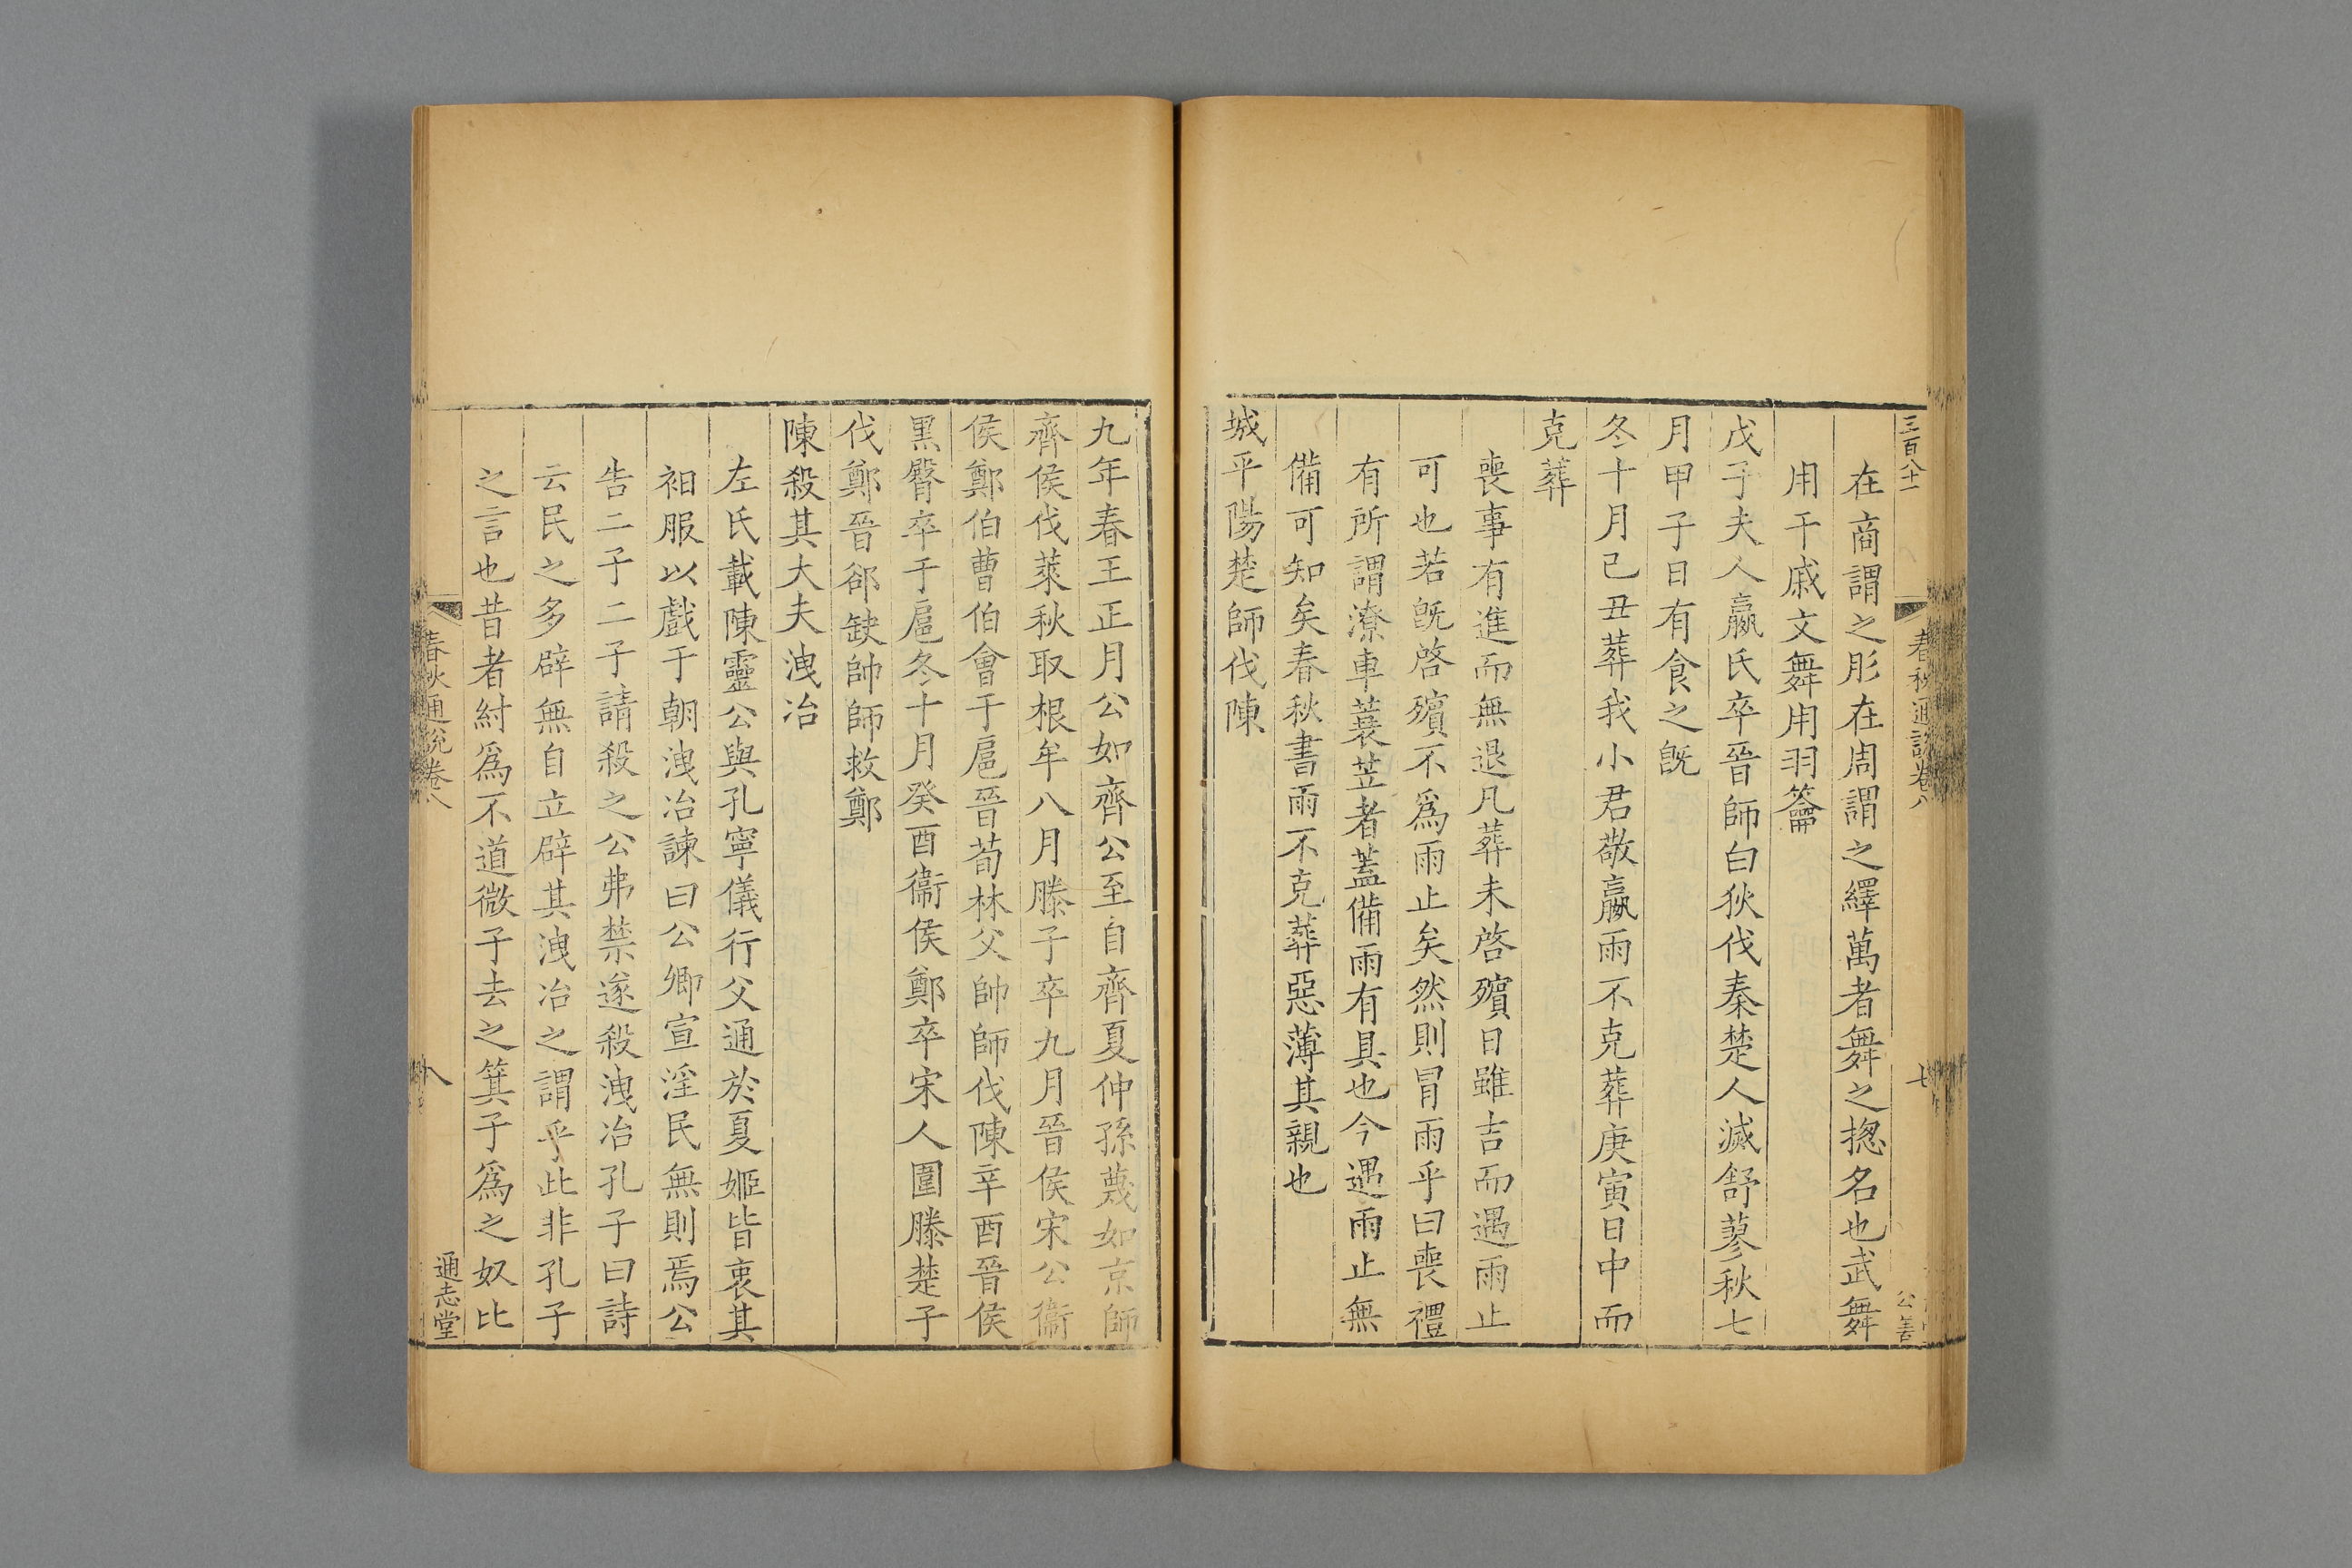 三百八十一
春秋通說卷八
七
在商謂之肜在周謂之繹萬者舞之揔名也武舞
用干戚文舞用羽籥
戊子夫人嬴氏卒晉師白狄伐秦楚人滅舒蓼秋七
月甲子日有食之旣
冬十月己丑葬我小君敬嬴雨不克葬庚寅日中而
克葬
喪事有進而無退凡葬未啓殯日雖吉而遇雨止
可也若旣啓殯不爲雨止矣然則冒雨乎曰喪禮
有所謂潦車蓑笠者蓋備雨有具也今遇雨止無
備可知矣春秋書雨不克葬惡薄其親也
城平陽楚師伐陳
九年春王正月公如齊公至自齊夏仲孫蔑如京師
齊侯伐萊秋取根牟八月滕子卒九月晉侯宋公衞
侯鄭伯曹伯會于扈晉荀林父帥師伐陳辛酉晉侯
黑臀卒于扈冬十月癸酉衞侯鄭卒宋人圍滕楚子
伐鄭晉郤缺帥師救鄭
陳殺其大夫洩冶
左氏載陳靈公與孔寧儀行父通於夏姬皆衷其
衵服以戲于朝洩冶諫曰公卿宣淫民無則焉公
告二子二子請殺之公弗禁遂殺洩冶孔子曰詩
云民之多辟無自立辟其洩冶之謂乎此非孔子
之言也昔者紂爲不道微子去之箕子爲之奴比
春秋通說卷八
八
通志堂